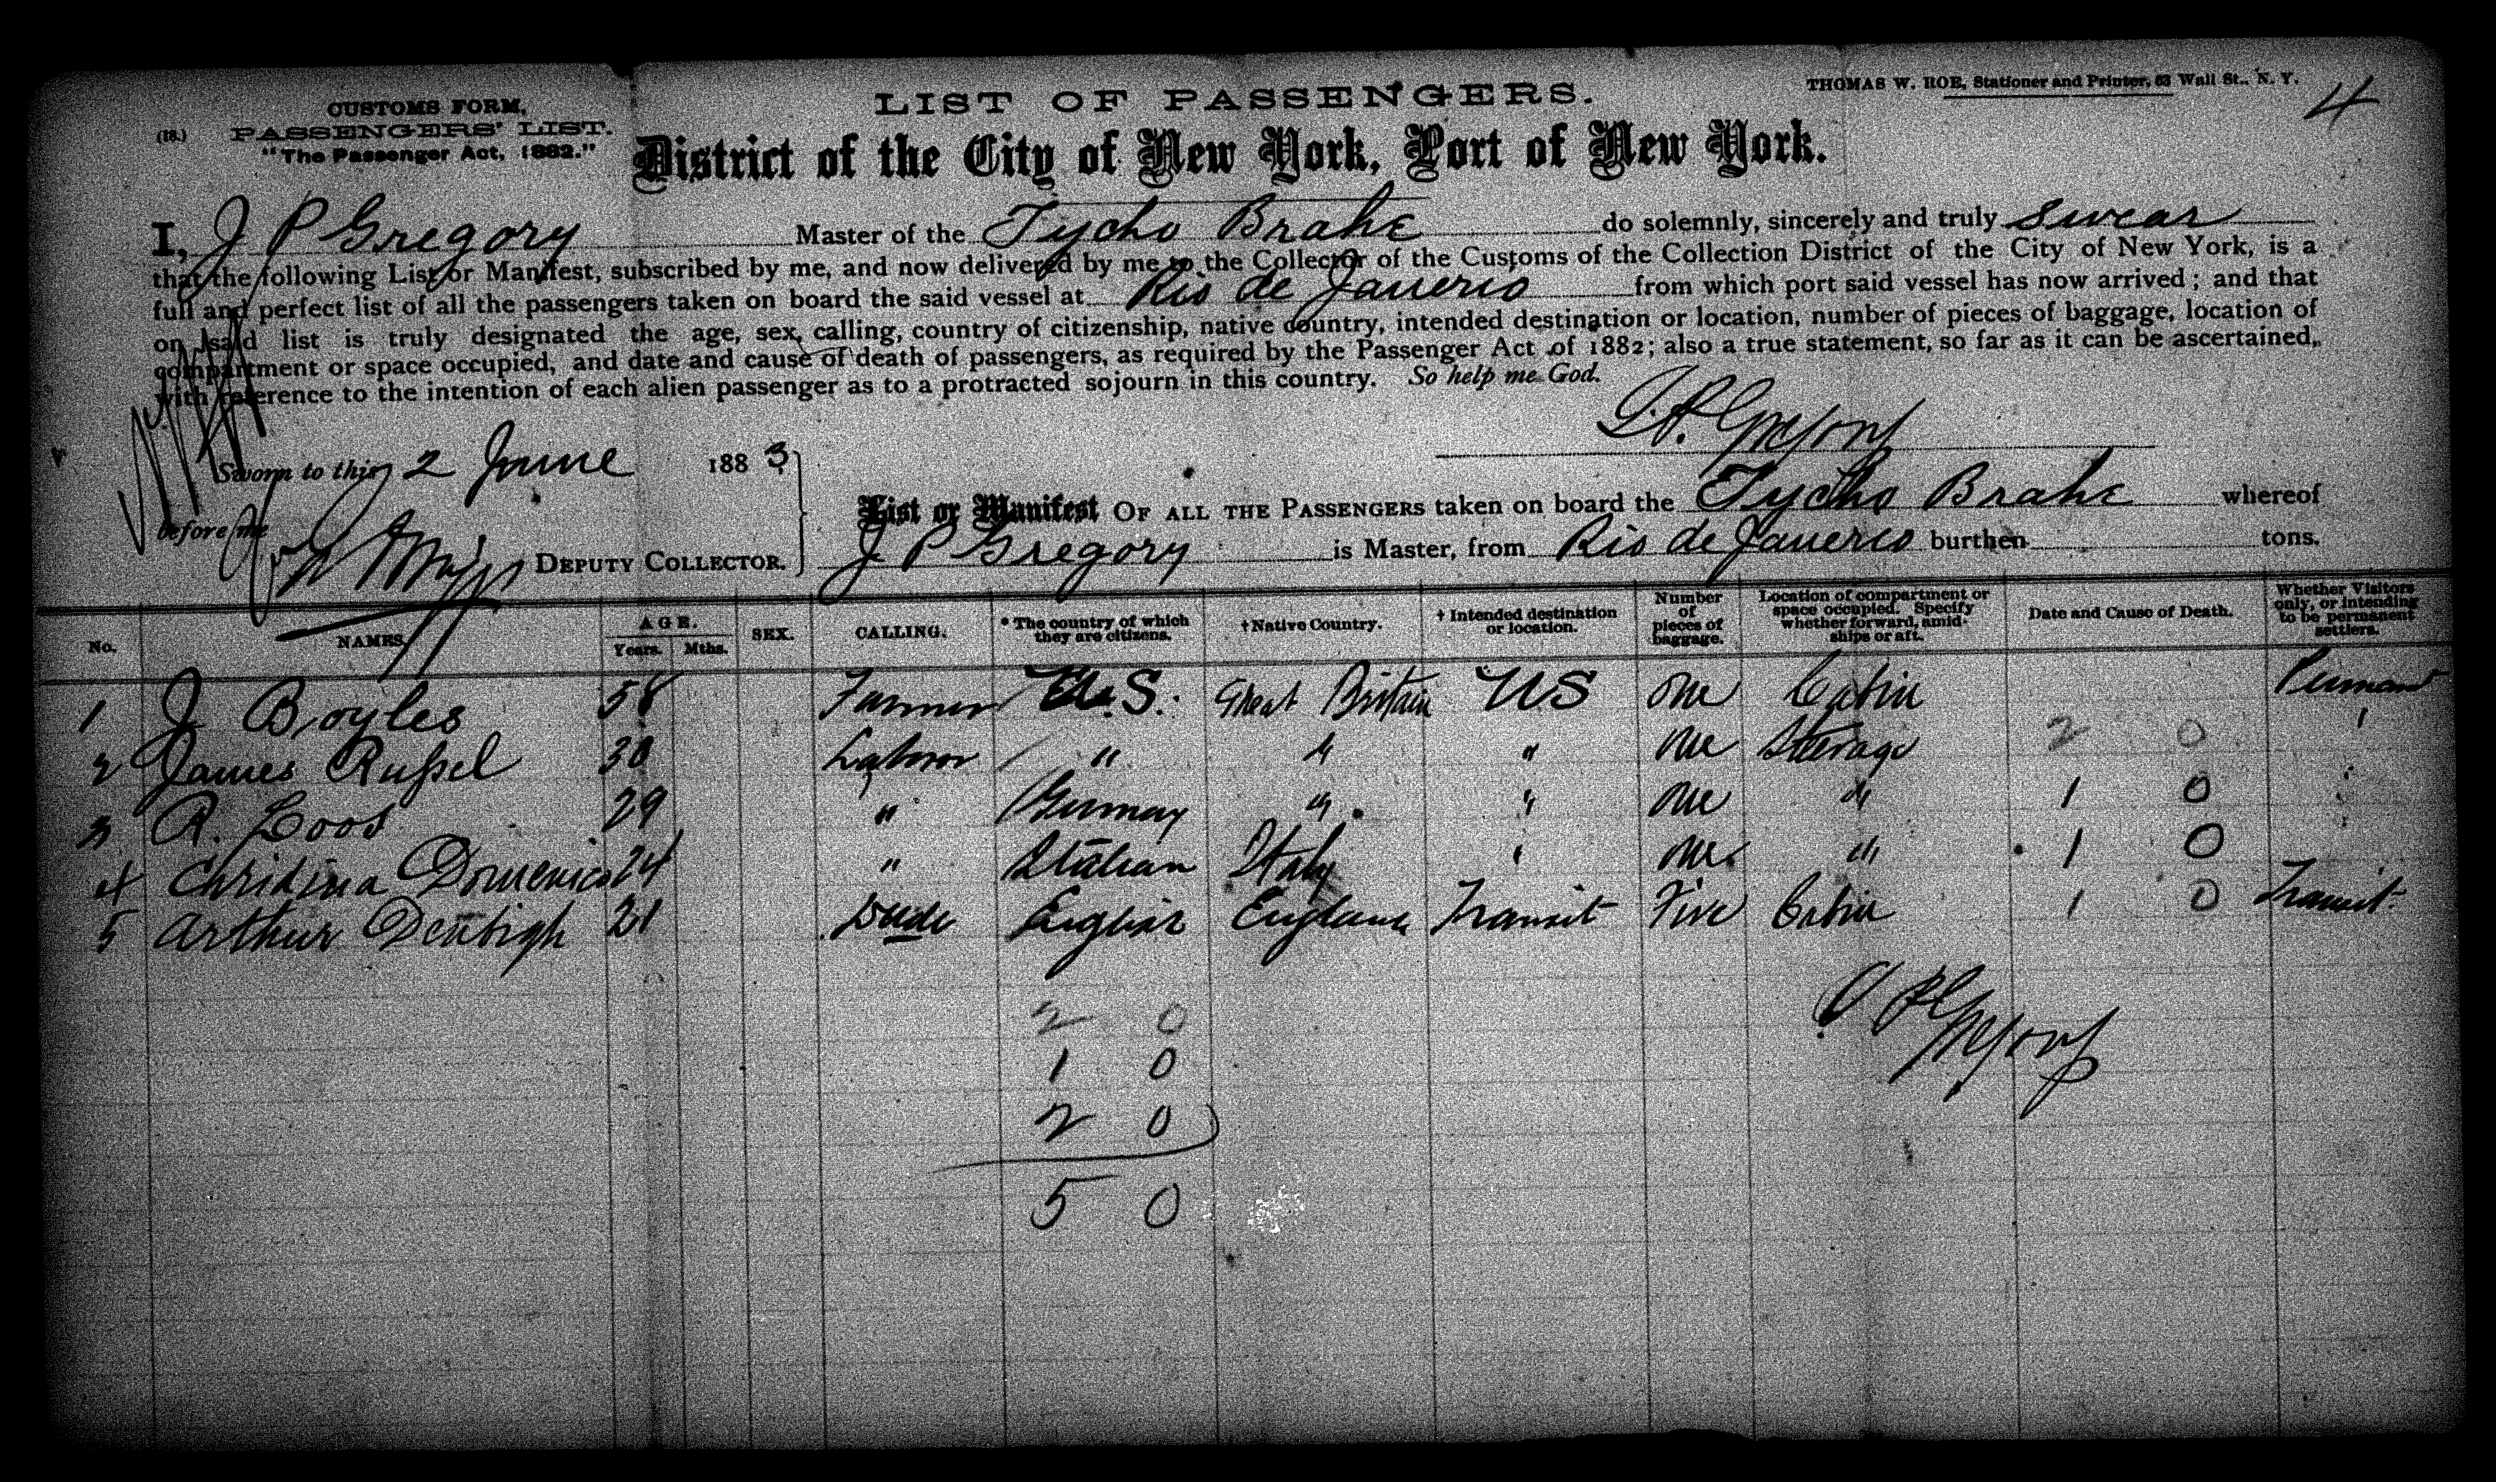 THOMAS W. ROE, Stationer and Printer, 63 Wall St., N. Y.
4
CUSTOMS FORM.
(18.) PASSENGERS' LIST.
"The Passenger Act, 1882."
LIST OF PASSENGERS.
District of the City of New York, Port of New York.
I, J P Gregory Master of the Tycho Brahe do solemnly, sincerely and truly swear
that the following List or Manifest, subscribed by me, and now delivered by me to the Collector of the Customs of the Collection District of the City of New York, is a
full and perfect list of all the passengers taken on board the said vessel at Rio de Janerio from which port said vessel has now arrived; and that
on said list is truly designated the age, sex, calling, country of citizenship, native country, intended destination or location, number of pieces of baggage, location of
compartment or space occupied, and date and cause of death of passengers, as required by the Passenger Act of 1882; also a true statement, so far as it can be ascertained,
with reference to the intention of each alien passenger as to a protracted sojourn in this country. So help me God.
J. P. Gregory
Sworn to this 2 June 1883
before me
DEPUTY COLLECTOR.
List or Manifest OF ALL THE PASSENGERS taken on board the Tycho Brahe whereof
J P Gregory is Master, from Rio de Janerio burthen tons.
No. NAMES AGE. Years. Mths. SEX. CALLING. * The country of which they are citizens. † Native Country. † Intended destination or location. Number of pieces of baggage. Location of compartment or space occupied. Specify whether forward, amidships or aft. Date and Cause of Death. Whether Visitors only, or intending to be permanent settlers.
1 J Boyles 58 Farmer U.S. Great Britain US one Cabin Permanent
2 James Russel 30 Laborer " " " one Steerage 2 0 '
3 A. Loos 29 " Germany " " one " 1 0
4 Christina Domenico 24 " Italian Italy ' one " 1 0
5 Arthur Denbigh 21 Dude English England Transit Five Cabin 1 0 Transit
2 0
1 0
2 0
5 0
J P Gregory